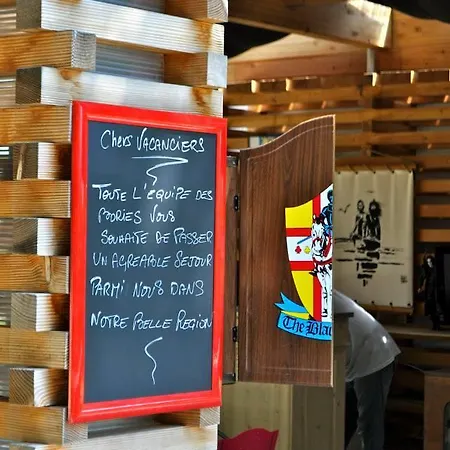 Chers VACANCIERS
TOUTE L'ÉQUIPE DES
PODRIES VOUS
SOUHAITE DE PASSER
UN AGREABLE SEJOUR
PARMI NOUS DANS
NOTRE BELLE REGION
The Black